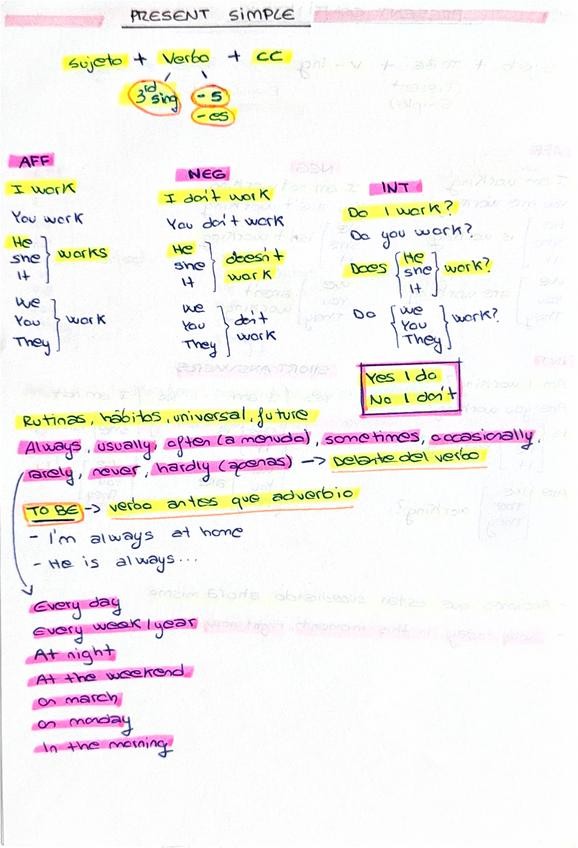 PRESENT SIMPLE
Sujeto + Verbo + CC
3rd sing
- s
- es
AFF
I work
You work
He
she
It
works
We
You
They
work
NEG
I don't work
You don't work
He
she
It
doesn't
work
We
You
They
don't
work
INT
Do I work?
Do you work?
Does
He
she
It
work?
Do
We
You
They
work?
Yes I do
No I don't
Rutinas, hábitos, universal, future
Always, usually, often (a menudo), sometimes, occasionally,
rarely, never, hardly (apenas) -> Delante del verbo
TO BE -> verbo antes que adverbio
- I'm always at home
- He is always...
Every day
Every week / year
At night
At the weekend
on march
on monday
In the morning